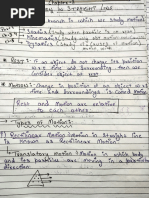 Chapter-3
MOTION IN STRAIGHT LINE
branch in which we study motion
Statics (study when object is in
Kinematics (study of motion
Dynamics (study of (causes) of motion)
REST: If an object do not change its position
w.r.t time and surrounding then we
consider object at rest
MOTION: change in position of an object
w.r.t time and surroundings is called motion
Rest and motion are relative
to each other
Types of Motion:-
Rectilinear Motion: Motion in straight line
is known as Rectilinear motion
Translatory motion: Motion in which whole body
and its particles are moving in a particular
direction